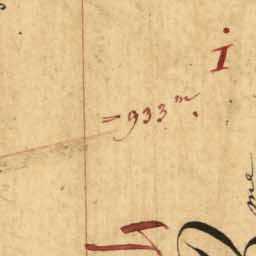 i
= 933 m.
me